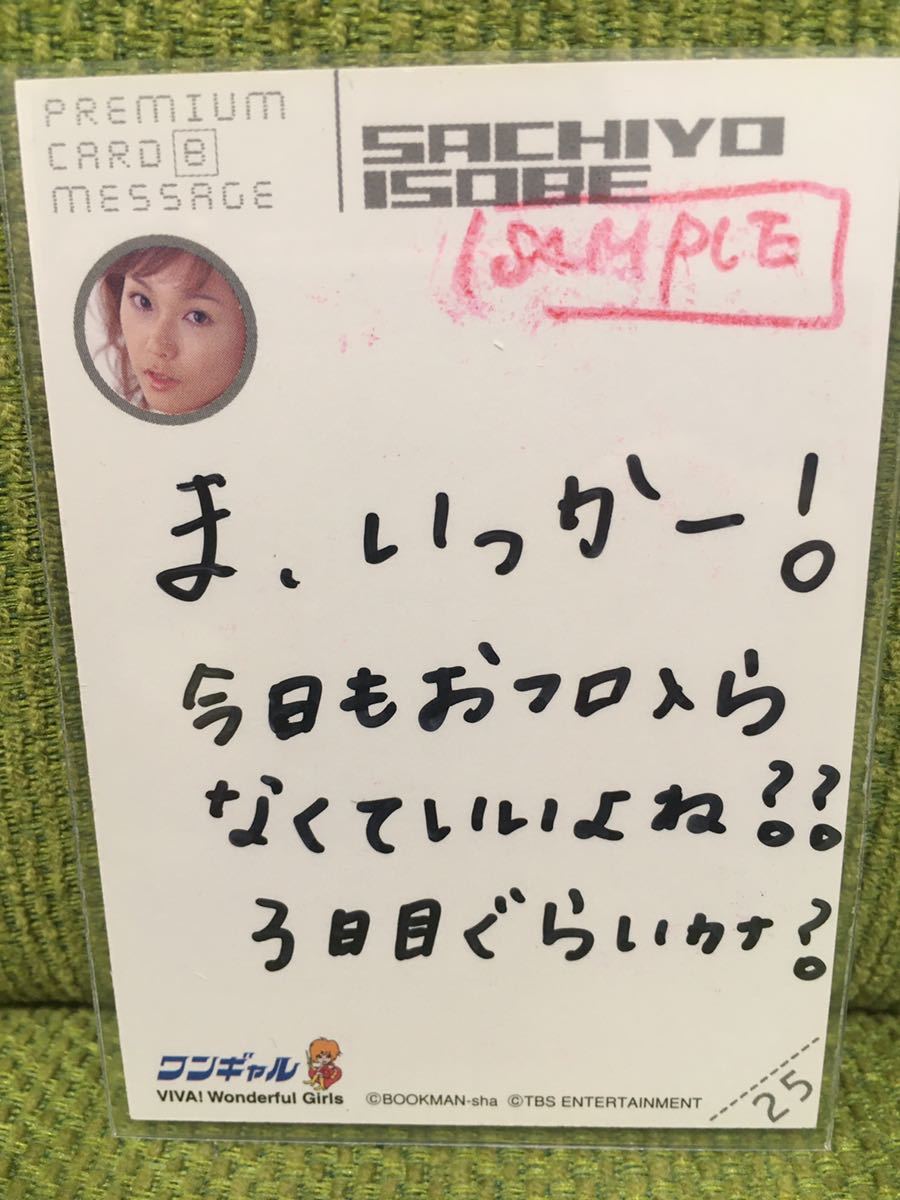 PREMIUM
CARD B
MESSAGE
SACHIYO
ISOBE
SAMPLE
ま、いっかー!
今日もおフロ入ら
なくていいよね??
3日目ぐらいカナ?
ワンギャル
VIVA! Wonderful Girls
©BOOKMAN-sha ©TBS ENTERTAINMENT
25